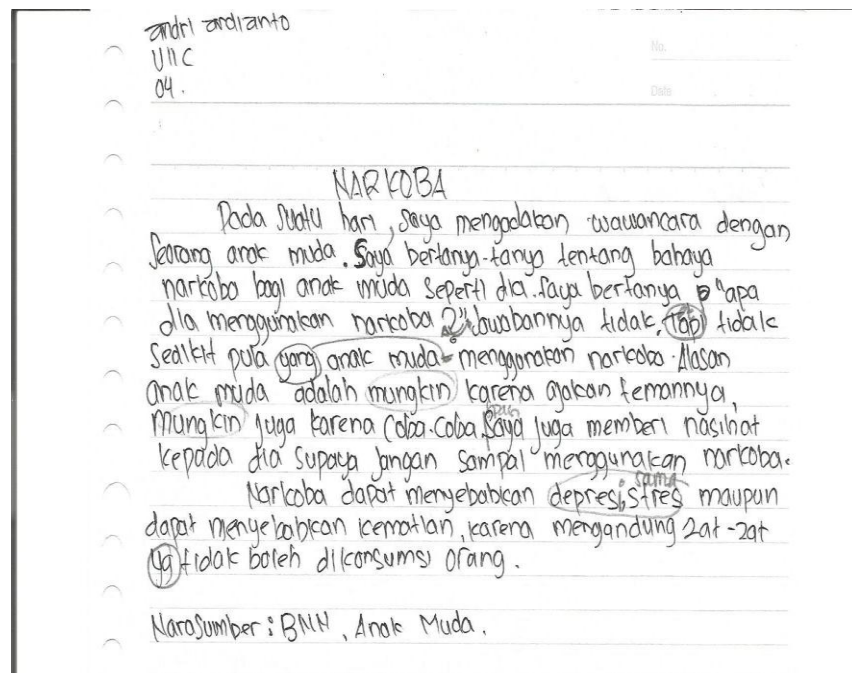 andri ardianto
VII C
04.
No.
Date
NARKOBA
Pada suatu hari, saya mengadakan wawancara dengan
Seorang anak muda. Saya bertanya-tanya tentang bahaya
narkoba bagi anak muda seperti dia. Saya bertanya "apa
dia menggunakan narkoba?" Jawabannya tidak, Tapi tidak
Sedikit pula yang anak muda menggunakan narkoba. Alasan
anak muda adalah mungkin karena ajakan temannya,
Mungkin juga karena Coba-Coba. Saya pun juga memberi nasihat
kepada dia supaya jangan sampai menggunakan narkoba.
Narkoba dapat menyebabkan depresi, stres sama maupun
dapat menyebabkan kematian, karena mengandung zat-zat
yg tidak boleh dikonsumsi orang.
Narasumber : BNN, Anak Muda.